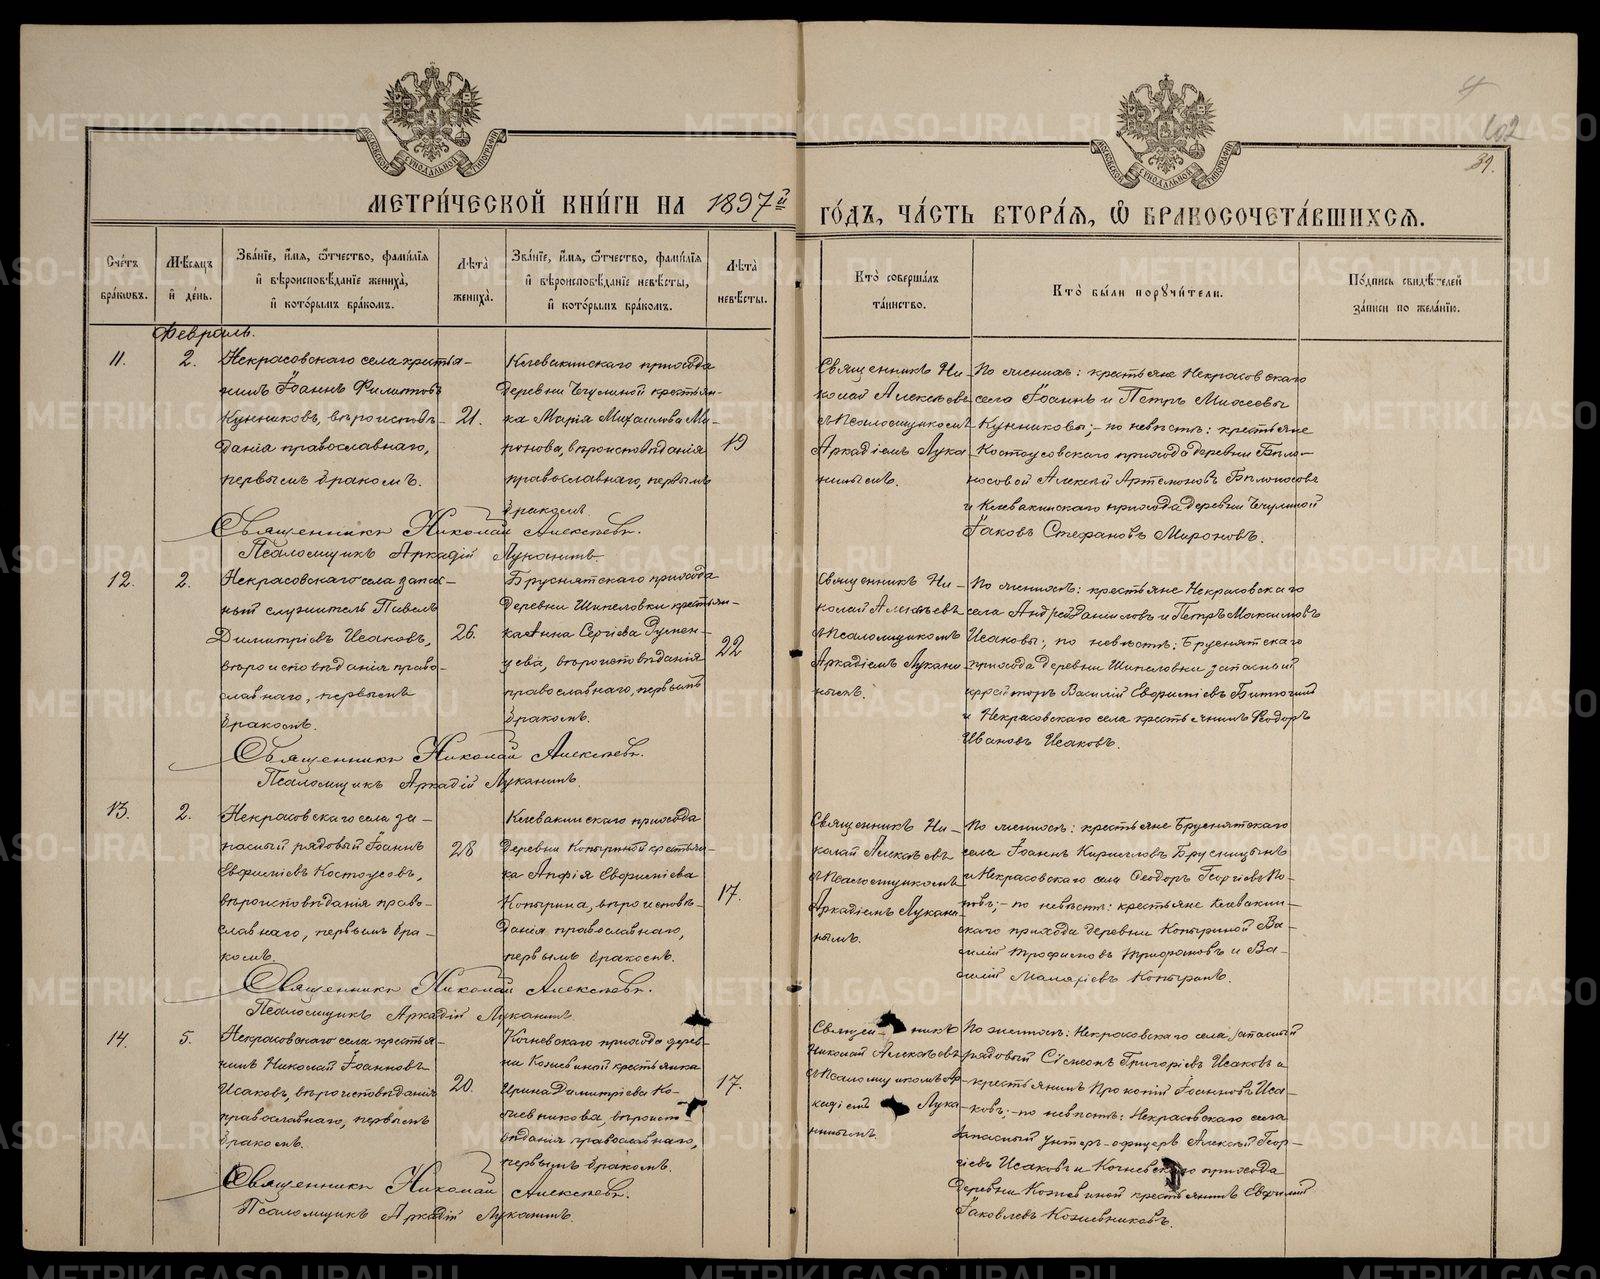 4
102
39.
МЕТРИ́ЧЕСКОЙ КНИ́ГИ НА 1897й
ГО́ДЪ, ЧА́СТЬ ВТОРА́Я, Ѽ БРАКОСОЧЕТА́ВШИХСЯ.
Сче́тъ
бра́ковъ.
Мѣ́сяцъ
и҆ де́нь.
Зва́нїе, и҆́мя, ѻ҆́тчество, фами́лїя
и҆ вѣроисповѣ́данїе жениха̀,
и҆ кото́рымъ бра́комъ.
Лѣ́та
жениха̀.
Зва́нїе, и҆́мя, ѻ҆́тчество, фами́лїя
и҆ вѣроисповѣ́данїе невѣ́сты,
и҆ кото́рымъ бра́комъ.
Лѣ́та
невѣ́сты.
Кто̀ соверша́лъ
та́инство.
Кто̀ бы́ли порꙋчи́тели.
По́дпись свидѣ́телей
за́писи по жела́нїю.
Февраль.
11.
2.
Некрасовскаго села крестья-
нинъ Іоаннъ Филатовъ
Кунниковъ, вѣроисповѣ-
данія православнаго,
первымъ бракомъ.
21.
Клевакинскаго прихода
деревни Чулиной крестьян-
ка Марія Михаилова Ми-
ронова, вѣроисповѣданія
православнаго, первымъ
бракомъ.
19
Священникъ Ни-
колай Алексѣевъ
съ Псаломщикомъ
Аркадіемъ Лука-
нинымъ.
По женихѣ: крестьяне Некрасовскаго
села Іоаннъ и Петръ Михеевы
Кунниковы; - по невѣстѣ: крестьяне
Костоусовскаго прихода деревни Бѣло-
носовой Алексѣй Артемоновъ Бѣлоносовъ
и Клевакинскаго прихода деревни Чулиной
Іаковъ Стефановъ Мироновъ.
Священникъ Николай Алексѣевъ.
Псаломщикъ Аркадій Луканинъ.
12.
2.
Некрасовскаго села запас-
ный служитель Павелъ
Димитріевъ Исаковъ,
вѣроисповѣданія право-
славнаго, первымъ
бракомъ.
26.
Бруснятскаго прихода
деревни Шипеловки крестьян-
ка Анна Сергіева
вѣроисповѣданія
православнаго, первымъ
бракомъ.
22
Священникъ Ни-
колай Алексѣевъ
съ Псаломщикомъ
Аркадіемъ Лукани-
нымъ.
По женихѣ: крестьяне Некрасовскаго
села Андрей Даніиловъ и Петръ Максимовъ
Исаковы; по невѣстѣ: Бруснятскаго
прихода деревни Шипеловки запасный
ефрейторъ Василій Евфиміевъ
и Некрасовскаго села крестьянинъ Ѳеодоръ
Ивановъ Исаковъ.
Священникъ Николай Алексѣевъ.
Псаломщикъ Аркадій Луканинъ.
13.
2.
Некрасовскаго села за-
пасный рядовый Іоаннъ
Евфиміевъ Костоусовъ,
вѣроисповѣданія право-
славнаго, первымъ бра-
комъ.
28
Клевакинскаго прихода
деревни Копыриной крестьян-
ка Анфія Евфиміева
Копырина, вѣроисповѣ-
данія православнаго,
первымъ бракомъ.
17.
Священникъ Ни-
колай Алексѣевъ
съ Псаломщикомъ
Аркадіемъ Лукани-
нымъ.
По женихѣ: крестьяне Бруснятскаго
села Іоаннъ Кирилловъ Брусницынъ
и Некрасовскаго села Ѳеодоръ Георгіевъ По-
повъ; - по невѣстѣ: крестьяне Клевакин-
скаго прихода деревни Копыриной Ва-
силій Трофимовъ и Ва-
силій Копыринъ.
Священникъ Николай Алексѣевъ.
Псаломщикъ Аркадій Луканинъ.
14.
5.
Некрасовскаго села крестья-
нинъ Николай Іоанновъ
Исаковъ, вѣроисповѣданія
православнаго, первымъ
бракомъ.
20.
Кочневскаго прихода дерев-
ни Кожевиной крестьянка
Ирина Димитріева Ко-
жевникова, вѣроиспо-
вѣданія православнаго,
первымъ бракомъ.
17.
Священникъ
Николай Алексѣевъ
съ Псаломщикомъ Ар-
кадіемъ Лука-
нинымъ.
По женихѣ: Некрасовскаго села запасный
рядовый Сѵмеонъ Григоріевъ Исаковъ и
крестьянинъ Прокопій Іоанновъ Иса-
ковъ; - по невѣстѣ: Некрасовскаго села
запасный унтеръ-офицеръ Алексѣй Геор-
гіевъ Исаковъ и Кочневскаго прихода
деревни Кожевиной крестьянинъ Евфимій
Іаковлевъ Кожевниковъ.
Священникъ Николай Алексѣевъ.
Псаломщикъ Аркадій Луканинъ.
METRIKI.GASO-URAL.RU